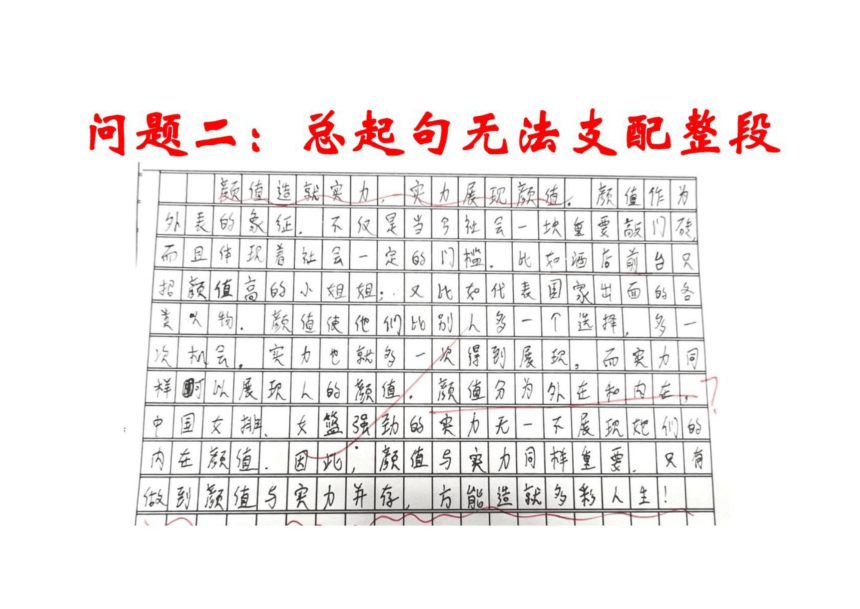 问题二：总起句无法支配整段
颜值造就实力，实力展现颜值。颜值作为
外表的象征。不仅是当今社会一块重要敲门砖，
而且体现着社会一定的门槛。比如酒店前台只
招颜值高的小姐姐；又比如代表国家出面的各
类人物。颜值使他们比别人多一个选择，多一
次机会。实力也就多一次得到展现。而实力同
样可以展现人的颜值。颜值分为外在和内在。
中国女排、女篮强劲的实力无一不展现她们的
内在颜值。因此，颜值与实力同样重要。只有
做到颜值与实力并存，方能造就多彩人生！